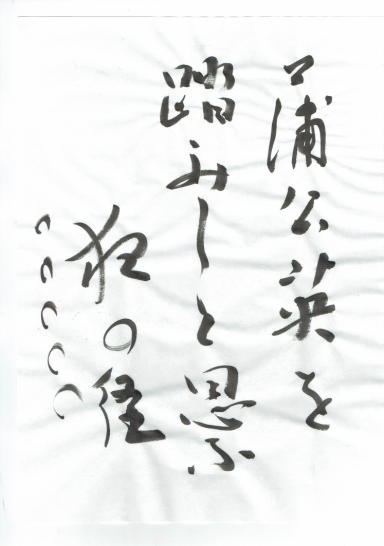 蒲公英を
踏みしと思ふ
夜の径